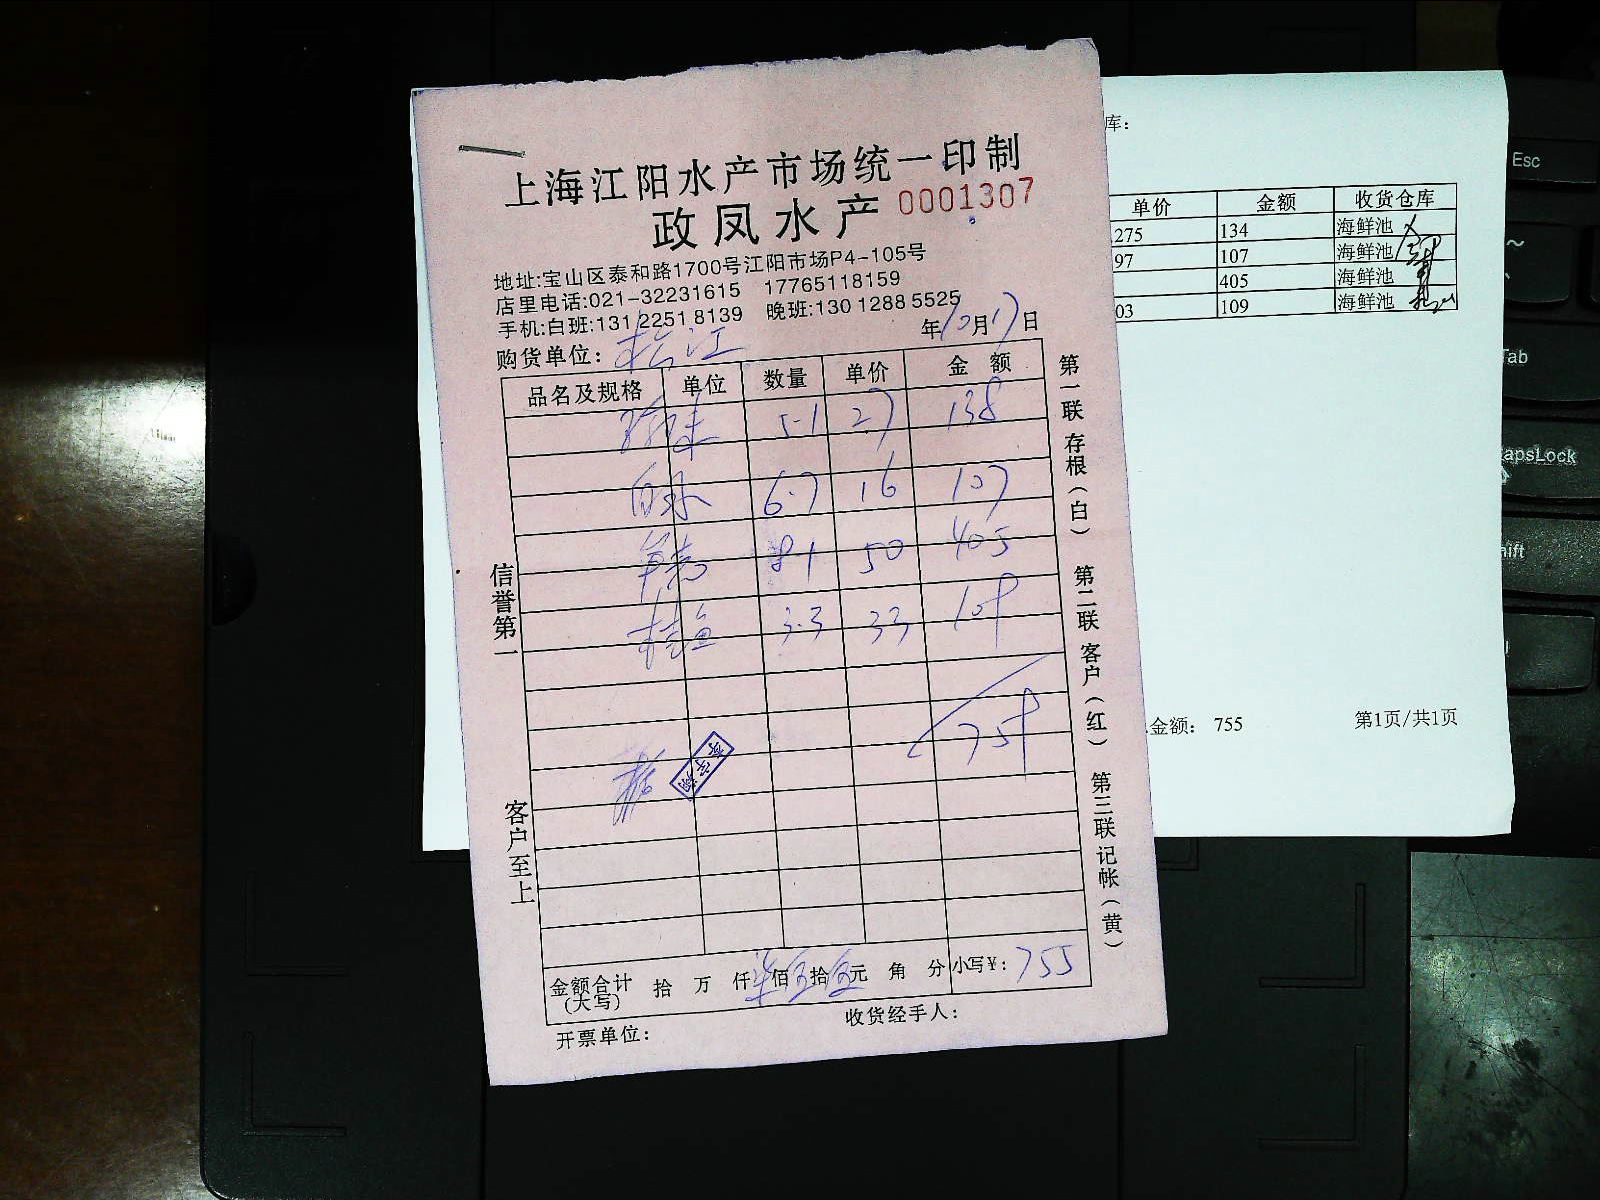 上海江阳水产市场统一印制
政凤水产 0001307
地址:宝山区泰和路1700号江阳市场P4-105号
店里电话:021-32231615 17765118159
手机:白班:131 2251 8139 晚班:130 1288 5525
年10月17日
购货单位: 松江
品名及规格 单位 数量 单价 金额
5.1 27 138
6.7 16 107
8.1 50 405
桂鱼 3.3 33 109
759
金额合计(大写) 拾 万 仟柒佰伍拾伍元 角 分 小写¥: 755
开票单位: 收货经手人:
信誉第一
客户至上
第一联 存根(白) 第二联 客户(红) 第三联 记帐(黄)
库:
单价 金额 收货仓库
275 134 海鲜池
97 107 海鲜池
405 海鲜池
03 109 海鲜池
金额: 755 第1页/共1页
Esc
~
Tab
apsLock
hift